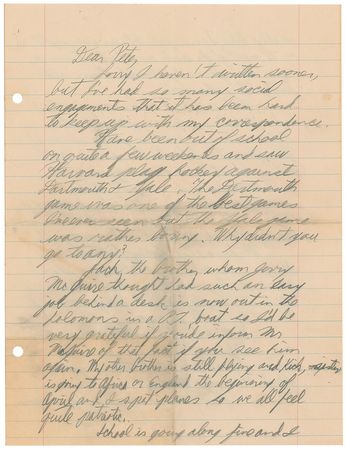 Dear Pete,
Sorry I haven't written sooner,
but I've had so many social
engagements that it has been hard
to keep up with my correspondence.
Have been out of school
on quite a few weekends and saw
Harvard play hockey against
Dartmouth & Yale. The Dartmouth
game was one of the best games
I've ever seen but the Yale game
was rather boring. Why didn't you
go to any?
Jack, the brother whom Gerry
McGuire thought had such an easy
job behind a desk is now out in the
Solomons in a P.T. boat so I'd be
very grateful if you'd inform Mr
McGuire of that fact if you see him
again. My other brother is still flying and Kick, my sister
is going to Africa or England the beginning of
April and I spot planes so we all feel
quite patriotic.
School is going along fine and I